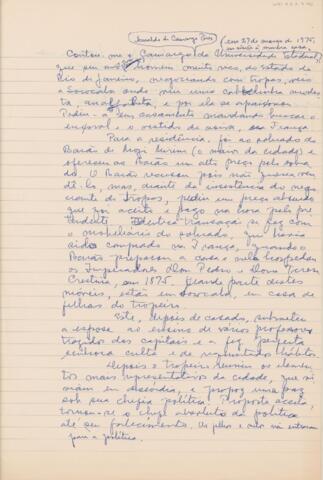 Arnaldo de Camargo Pires
(em 27 de março de 1975,
em visita à minha casa)
Contou-me o Camargo da Universidade Estadual,
que um homem muito rico, do Estado do
Rio de Janeiro, negociando com tropas, veio
a Sorocaba onde viu uma caboclinha modes
ta, analfabeta, e por ela se apaixonou.
Pediu-a em casamento mandando buscar o
enxoval, o vestido de noiva, na França.
Para a residência, foi ao sobrado do
Barão de Mogi Mirim (o maior da cidade) e
ofereceu ao Barão um alto preço pelo sobra
do. O Barão recusou pois não queria ven
dê-lo, mas, diante da insistência do nego
ciante de tropas, pediu um preço absurdo
que foi aceito e pago na hora pelo pre
tendente. Idêntica transação se fez com
o mobiliário do sobrado, que havia
sido comprado na França, quando o
Barão preparou a casa e nela hospedou
os Imperadores Dom Pedro e Dona Teresa
Cristina, em 1875. Grande parte destes
móveis, estão em Sorocaba, em casa de
filhas do tropeiro.
Este, depois de casado, submeteu
a esposa ao ensino de vários professores
trazidos das capitais e a fez perfeita
senhora culta e de requintados hábitos.
Depois o tropeiro reuniu os elemen
tos mais representativos da cidade, que vi
viam em discórdia, e propoz uma paz
sob sua chefia política. Proposta aceita,
tornou-se o chefe absoluto da política
até seu falecimento. Os filhos e netos não entraram
para a política.